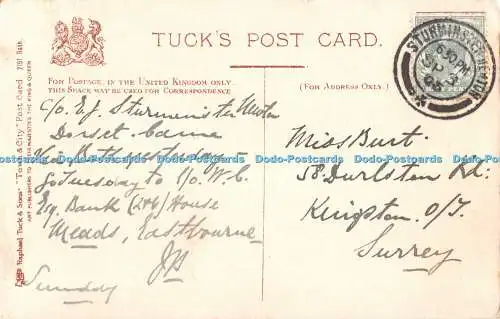 TUCK'S POST CARD.
FOR POSTAGE, IN THE UNITED KINGDOM ONLY
THIS SPACE MAY BE USED FOR CORRESPONDENCE
(FOR ADDRESS ONLY.)
Raphael Tuck & Sons' "Town & City" Post Card 7181 Bath.
ART PUBLISHERS TO THEIR MAJESTIES THE KING & QUEEN
STURMINSTER NEWTON
6.40PM
SP 3
c/o E.J. Sturminster Newton
Dorset. Came
Bath
Tuesday to c/o W.C.
Esq Bank House
Meads, Eastbourne
JB
Sunday
Miss Burt
58 Durlston Rd:
Kingston O/T.
Surrey
Dodo-Postcards Dodo-Postcards Dodo-Postcards Dodo-Postcards Dodo-Postcards